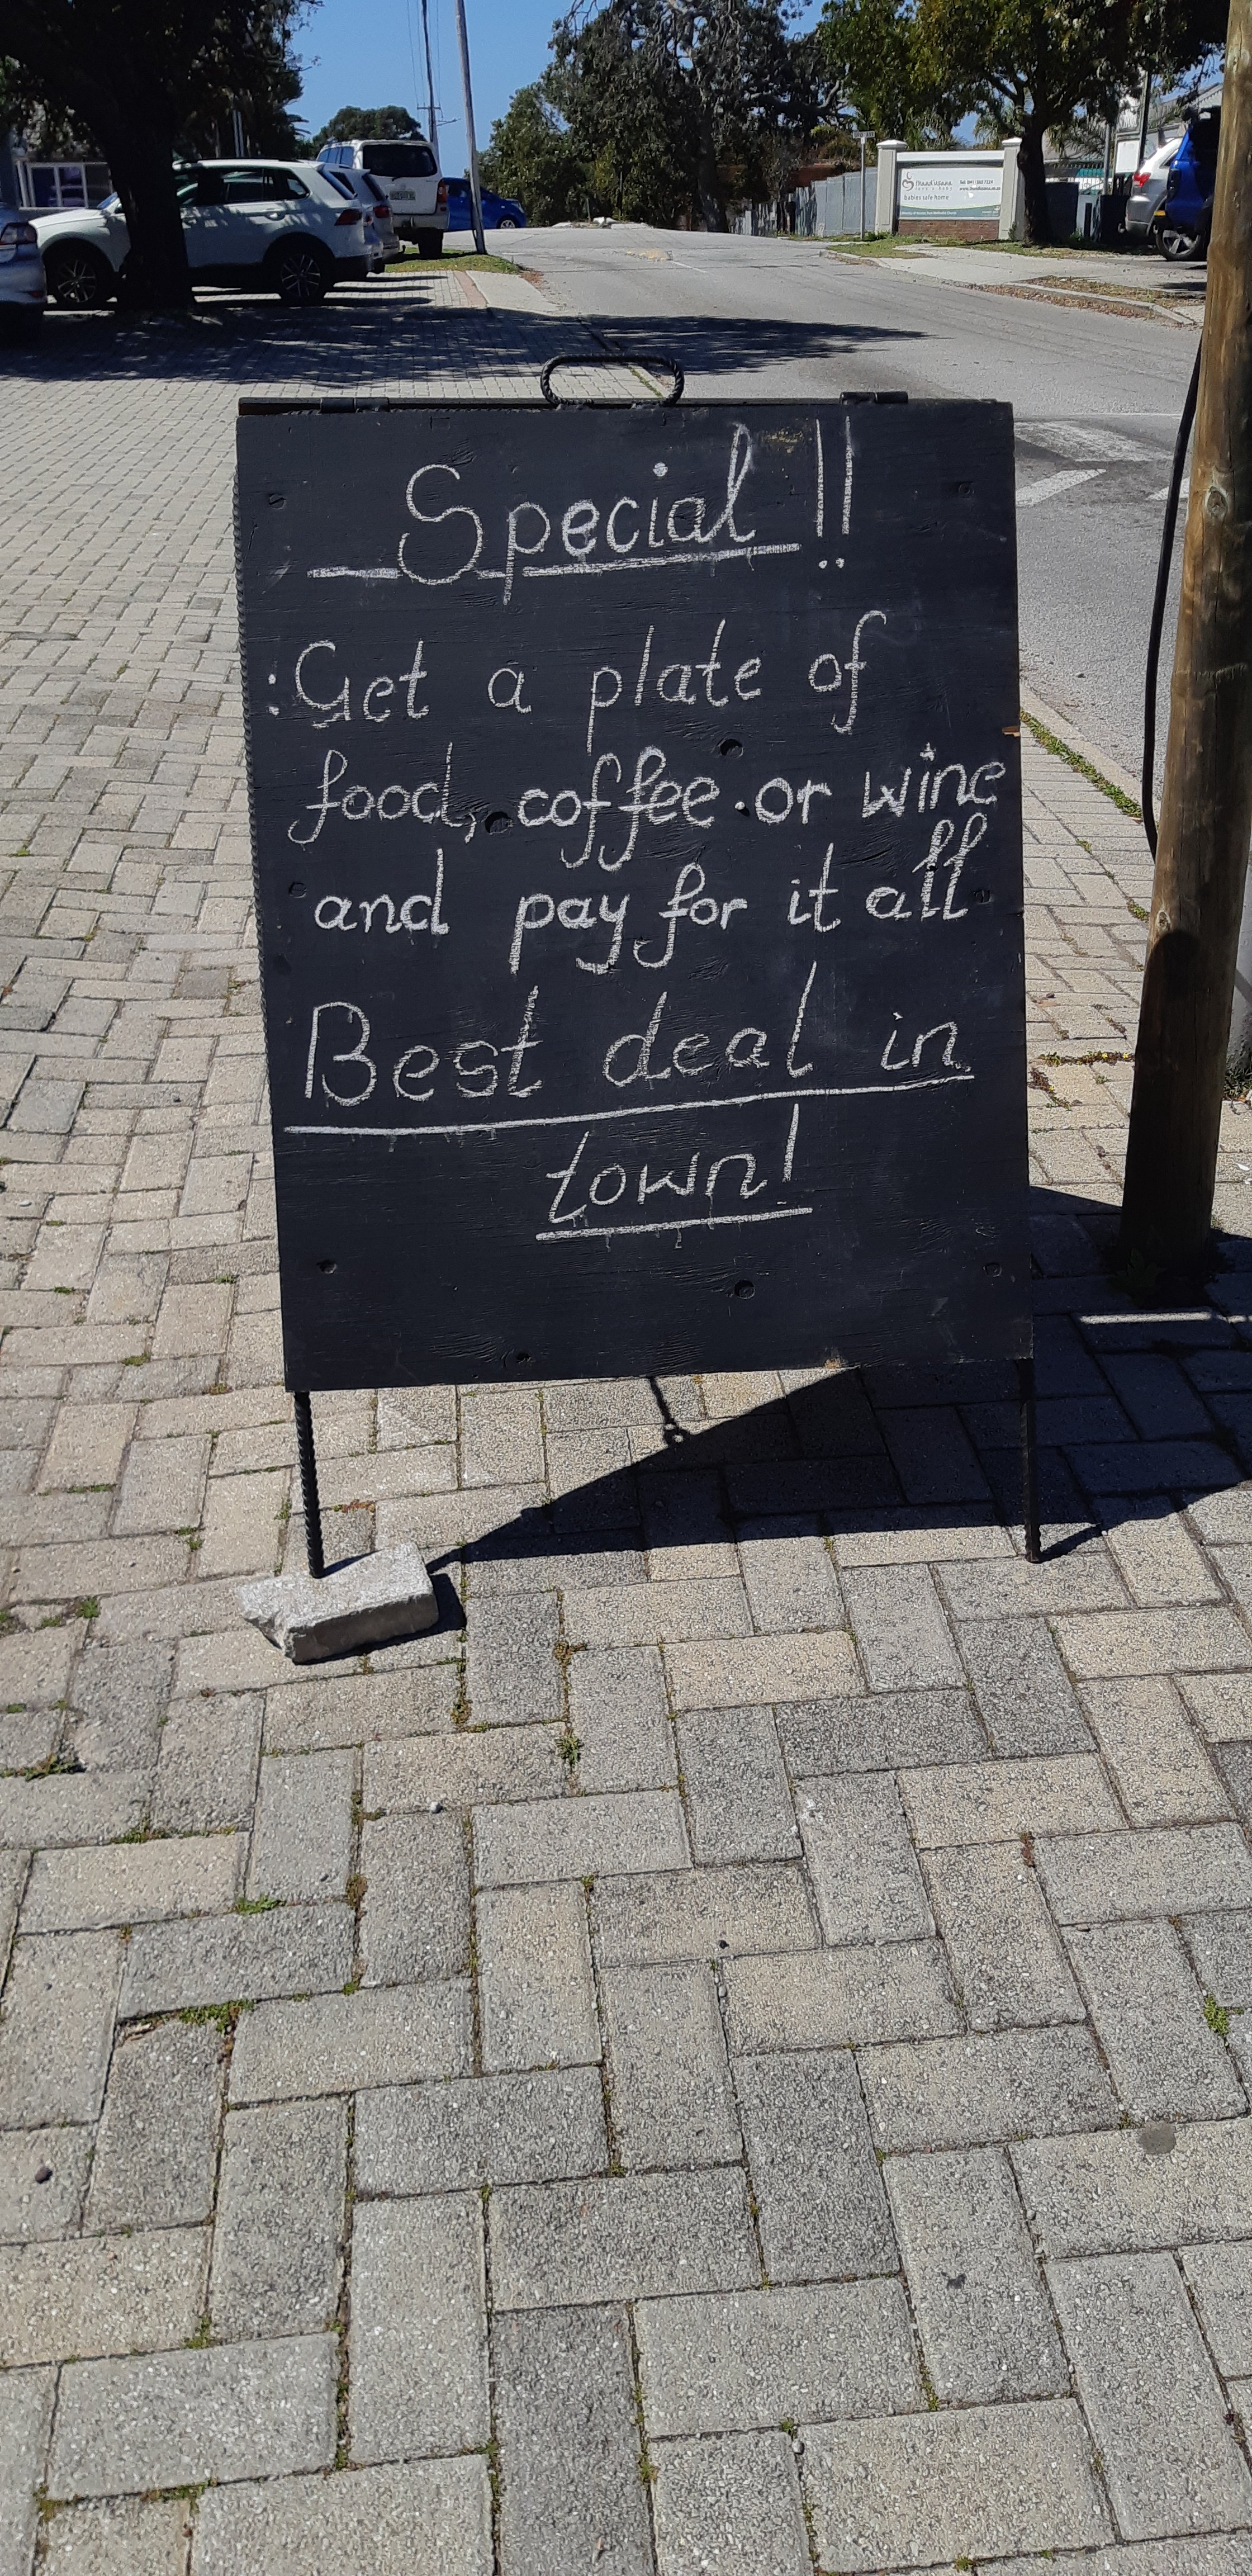 Special !!
:Get a plate of
food, coffee or wine
and pay for it all
Best deal in
town!
babies safe home